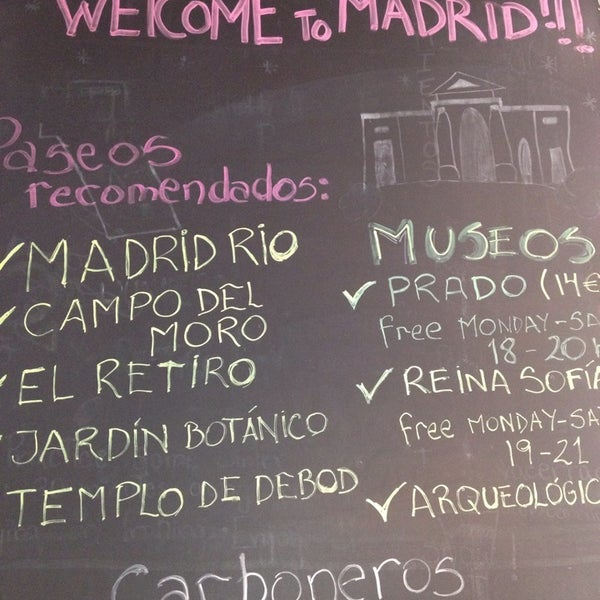 WELCOME TO MADRID!!!
Paseos
recomendados:
MADRID RIO
CAMPO DEL
MORO
EL RETIRO
JARDÍN BOTÁNICO
TEMPLO DE DEBOD
MUSEOS
PRADO (14€
free MONDAY-SA
18-20h
REINA SOFÍA
free MONDAY-SA
19-21
ARQUEOLÓGIC
Carboneros